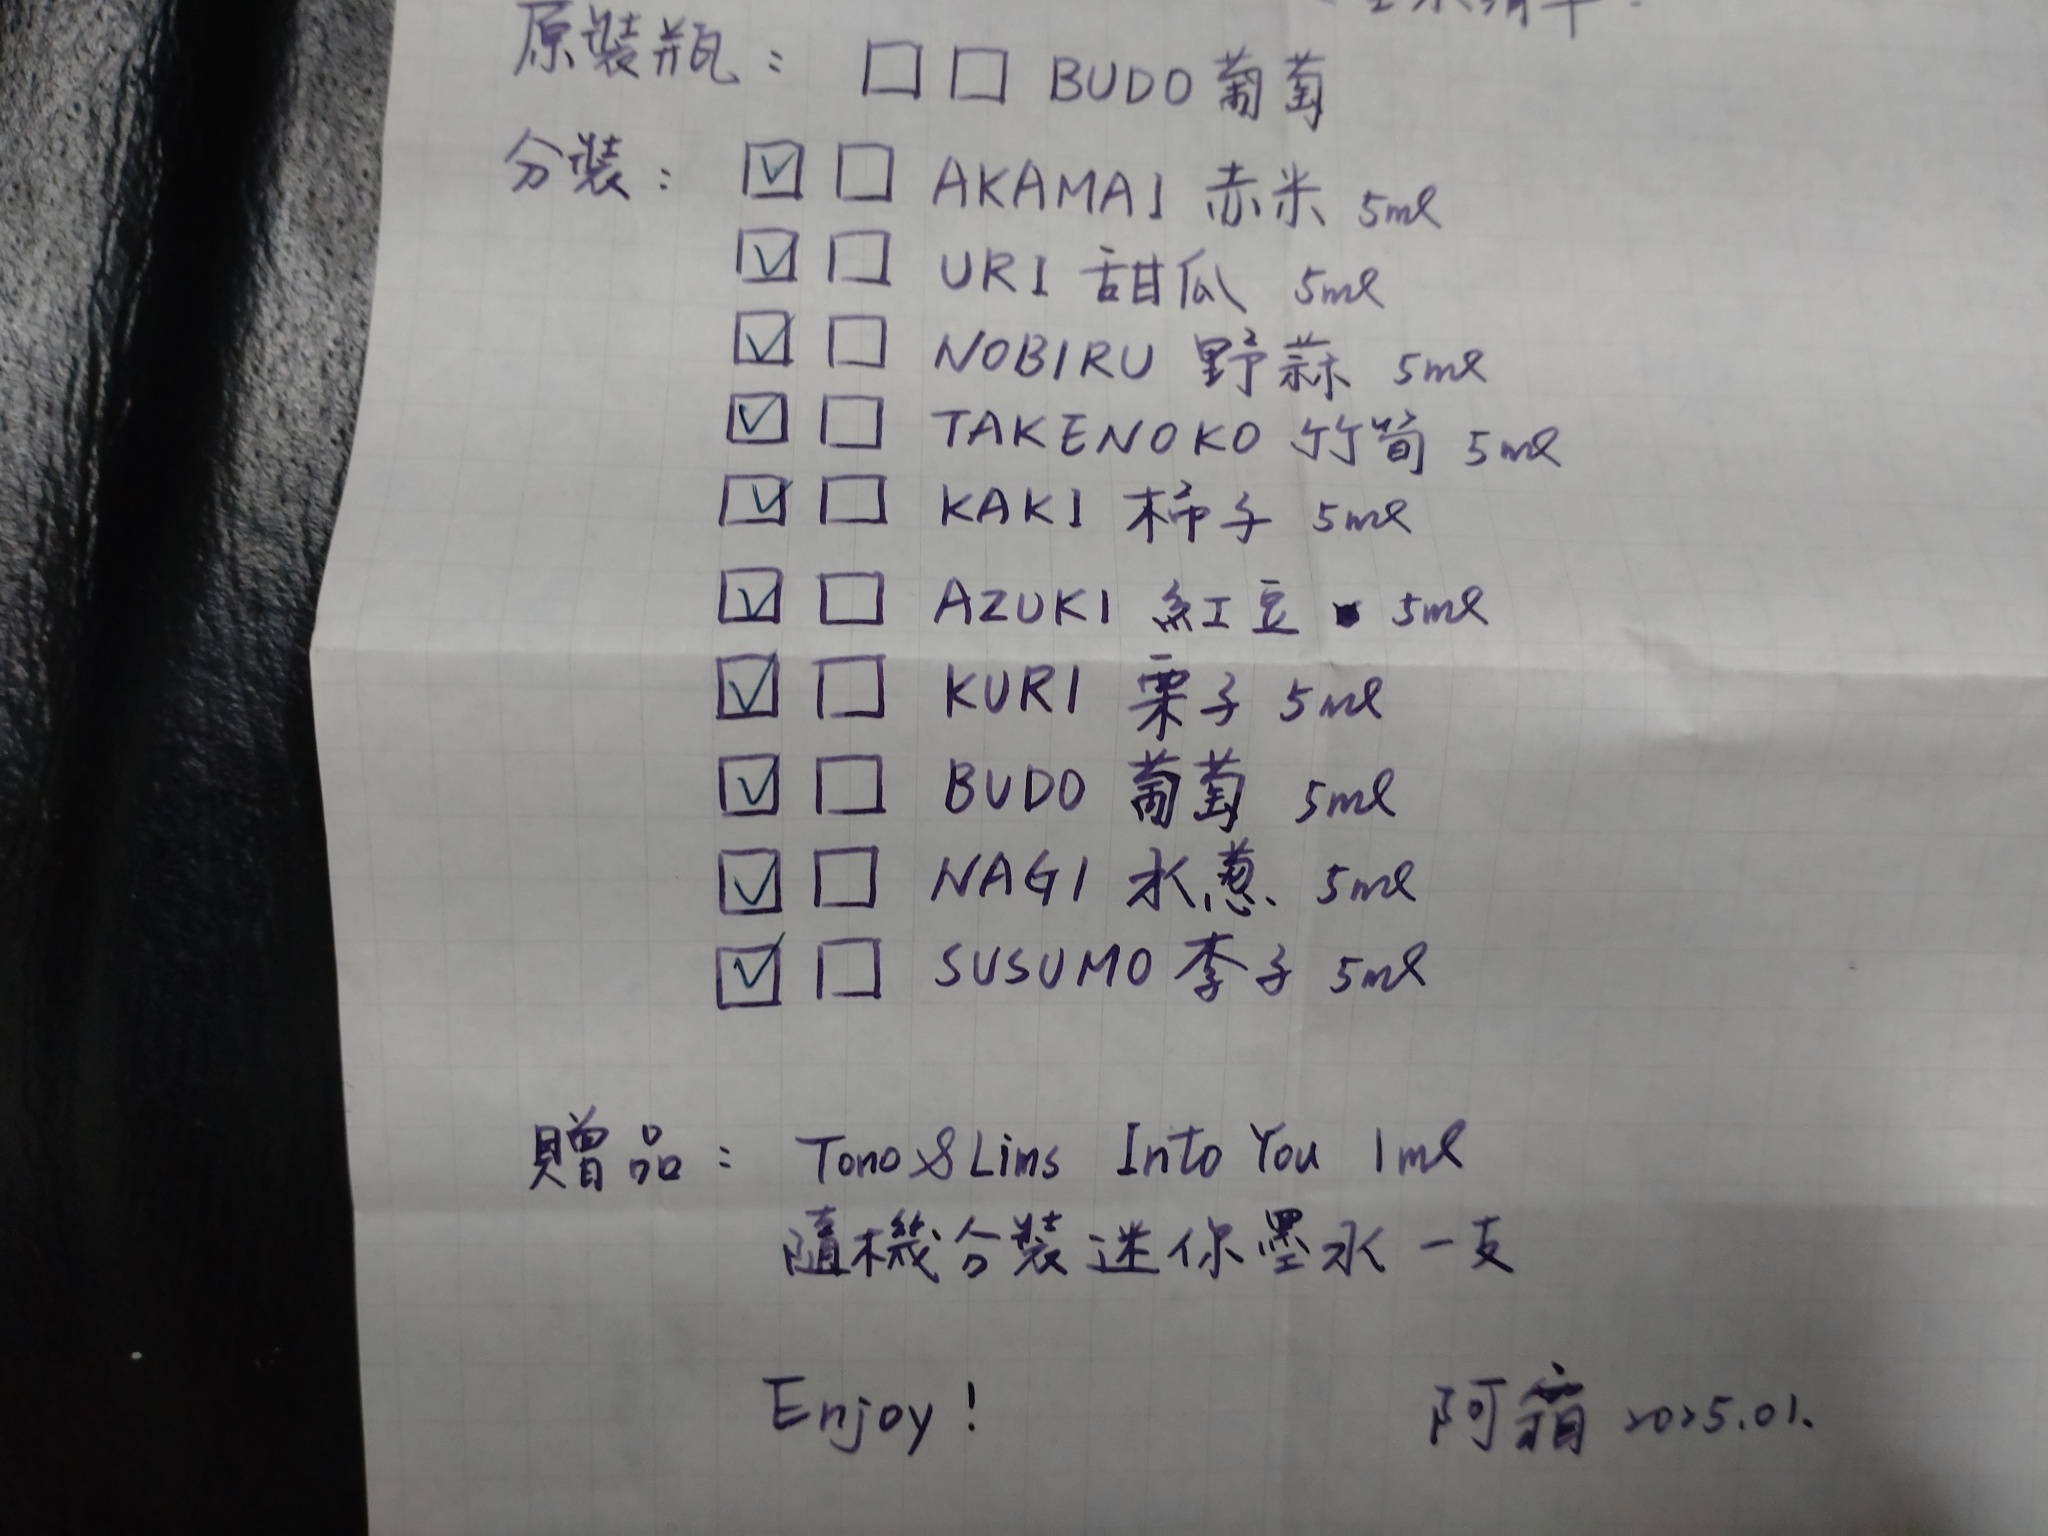 原裝瓶： □ □ BUDO 葡萄
分裝： ☑ □ AKAMAI 赤米 5ml
☑ □ URI 甜瓜 5ml
☑ □ NOBIRU 野蒜 5ml
☑ □ TAKENOKO 竹筍 5ml
☑ □ KAKI 柿子 5ml
☑ □ AZUKI 紅豆 5ml
☑ □ KURI 栗子 5ml
☑ □ BUDO 葡萄 5ml
☑ □ NAGI 水蔥 5ml
☑ □ SUSUMO 李子 5ml
贈品： Tono&Lims Into You 1ml
隨機分裝迷你墨水一支
Enjoy!
阿霜 2025.01.